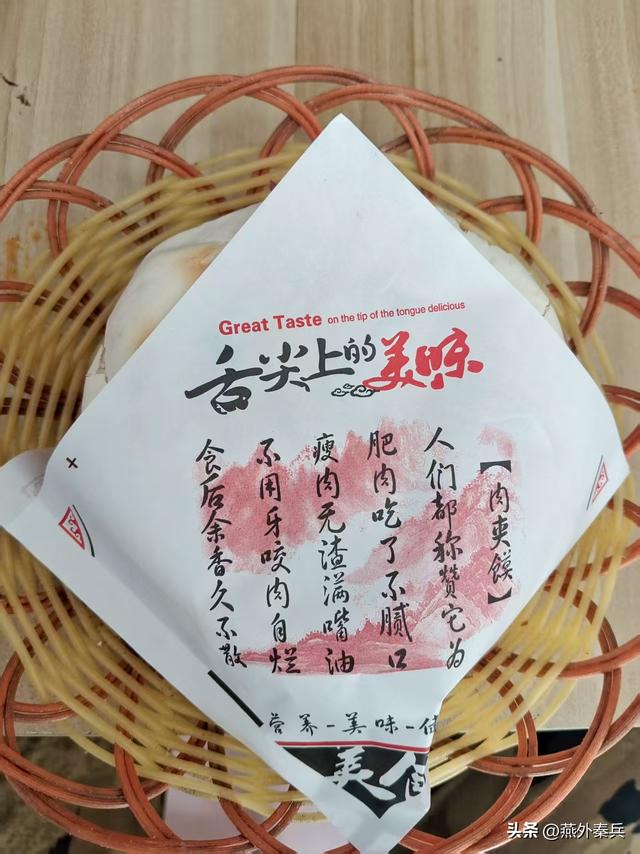 Great Taste on the tip of the tongue delicious
舌尖上的美味
【肉夹馍】
人们都称赞它为
肥肉吃了不腻口
瘦肉无渣满嘴油
不用牙咬肉自烂
食后余香久不散
营养-美味-健
美食
头条 @燕外秦兵